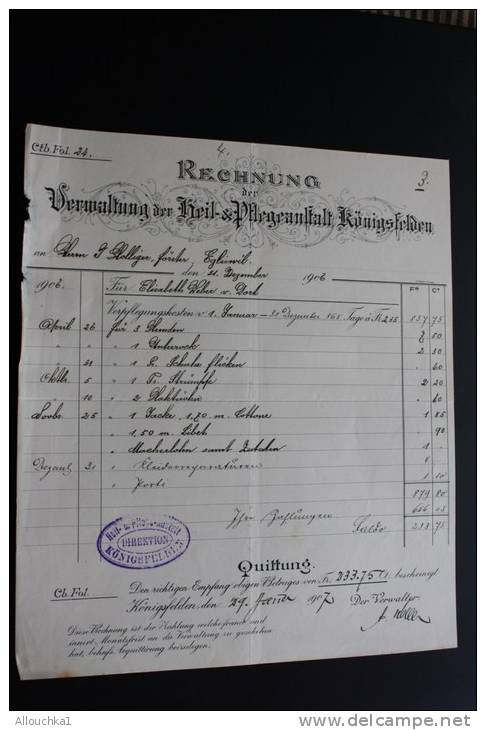 Ctb. Fol. 24.
4.
3.
RECHNUNG
der
Verwaltung der Heil- & Pflegeanstalt Königsfelden
an Herrn
den 31. Dezember 1906
1906 Für Elisabeth Weber v. Dorb Fr. Ct.
Verpflegungskosten v. 1. Januar — 31. Dezember 365 Tage à Fr. 2.35 857 75
April 26 für 3 Hemden 50
" " " 1 Unterrock 2 50
" " 1 P. Schuhe flicken . 60
Oktbr. 5 " 1 P. Strümpfe 2 20
" 10 " 2
25 " 1 Jacke, 1.80 m. Cottone 1 85
" 1,50 m. 90
" Macherlohn samt Zutaten 1 .
Kleiderreparaturen
" Porti 1
879 80
Ihre Zahlungen
Saldo 75
Heil- u. Pflege-Anstalt
DIREKTION
KÖNIGSFELDEN
Quittung.
Cb. Fol. Den richtigen Empfang obigen Betrages von Fr. 233.75 Ct. bescheinigt
Königsfelden, den 29. Januar 1907 Der Verwalter
Diese Rechnung ist der Zahlung welche franco und
innert Monatsfrist an die Verwaltung zu geschehen
hat, behufs Acquittierung beizulegen.
© Allouchka1
www.delcampe.net